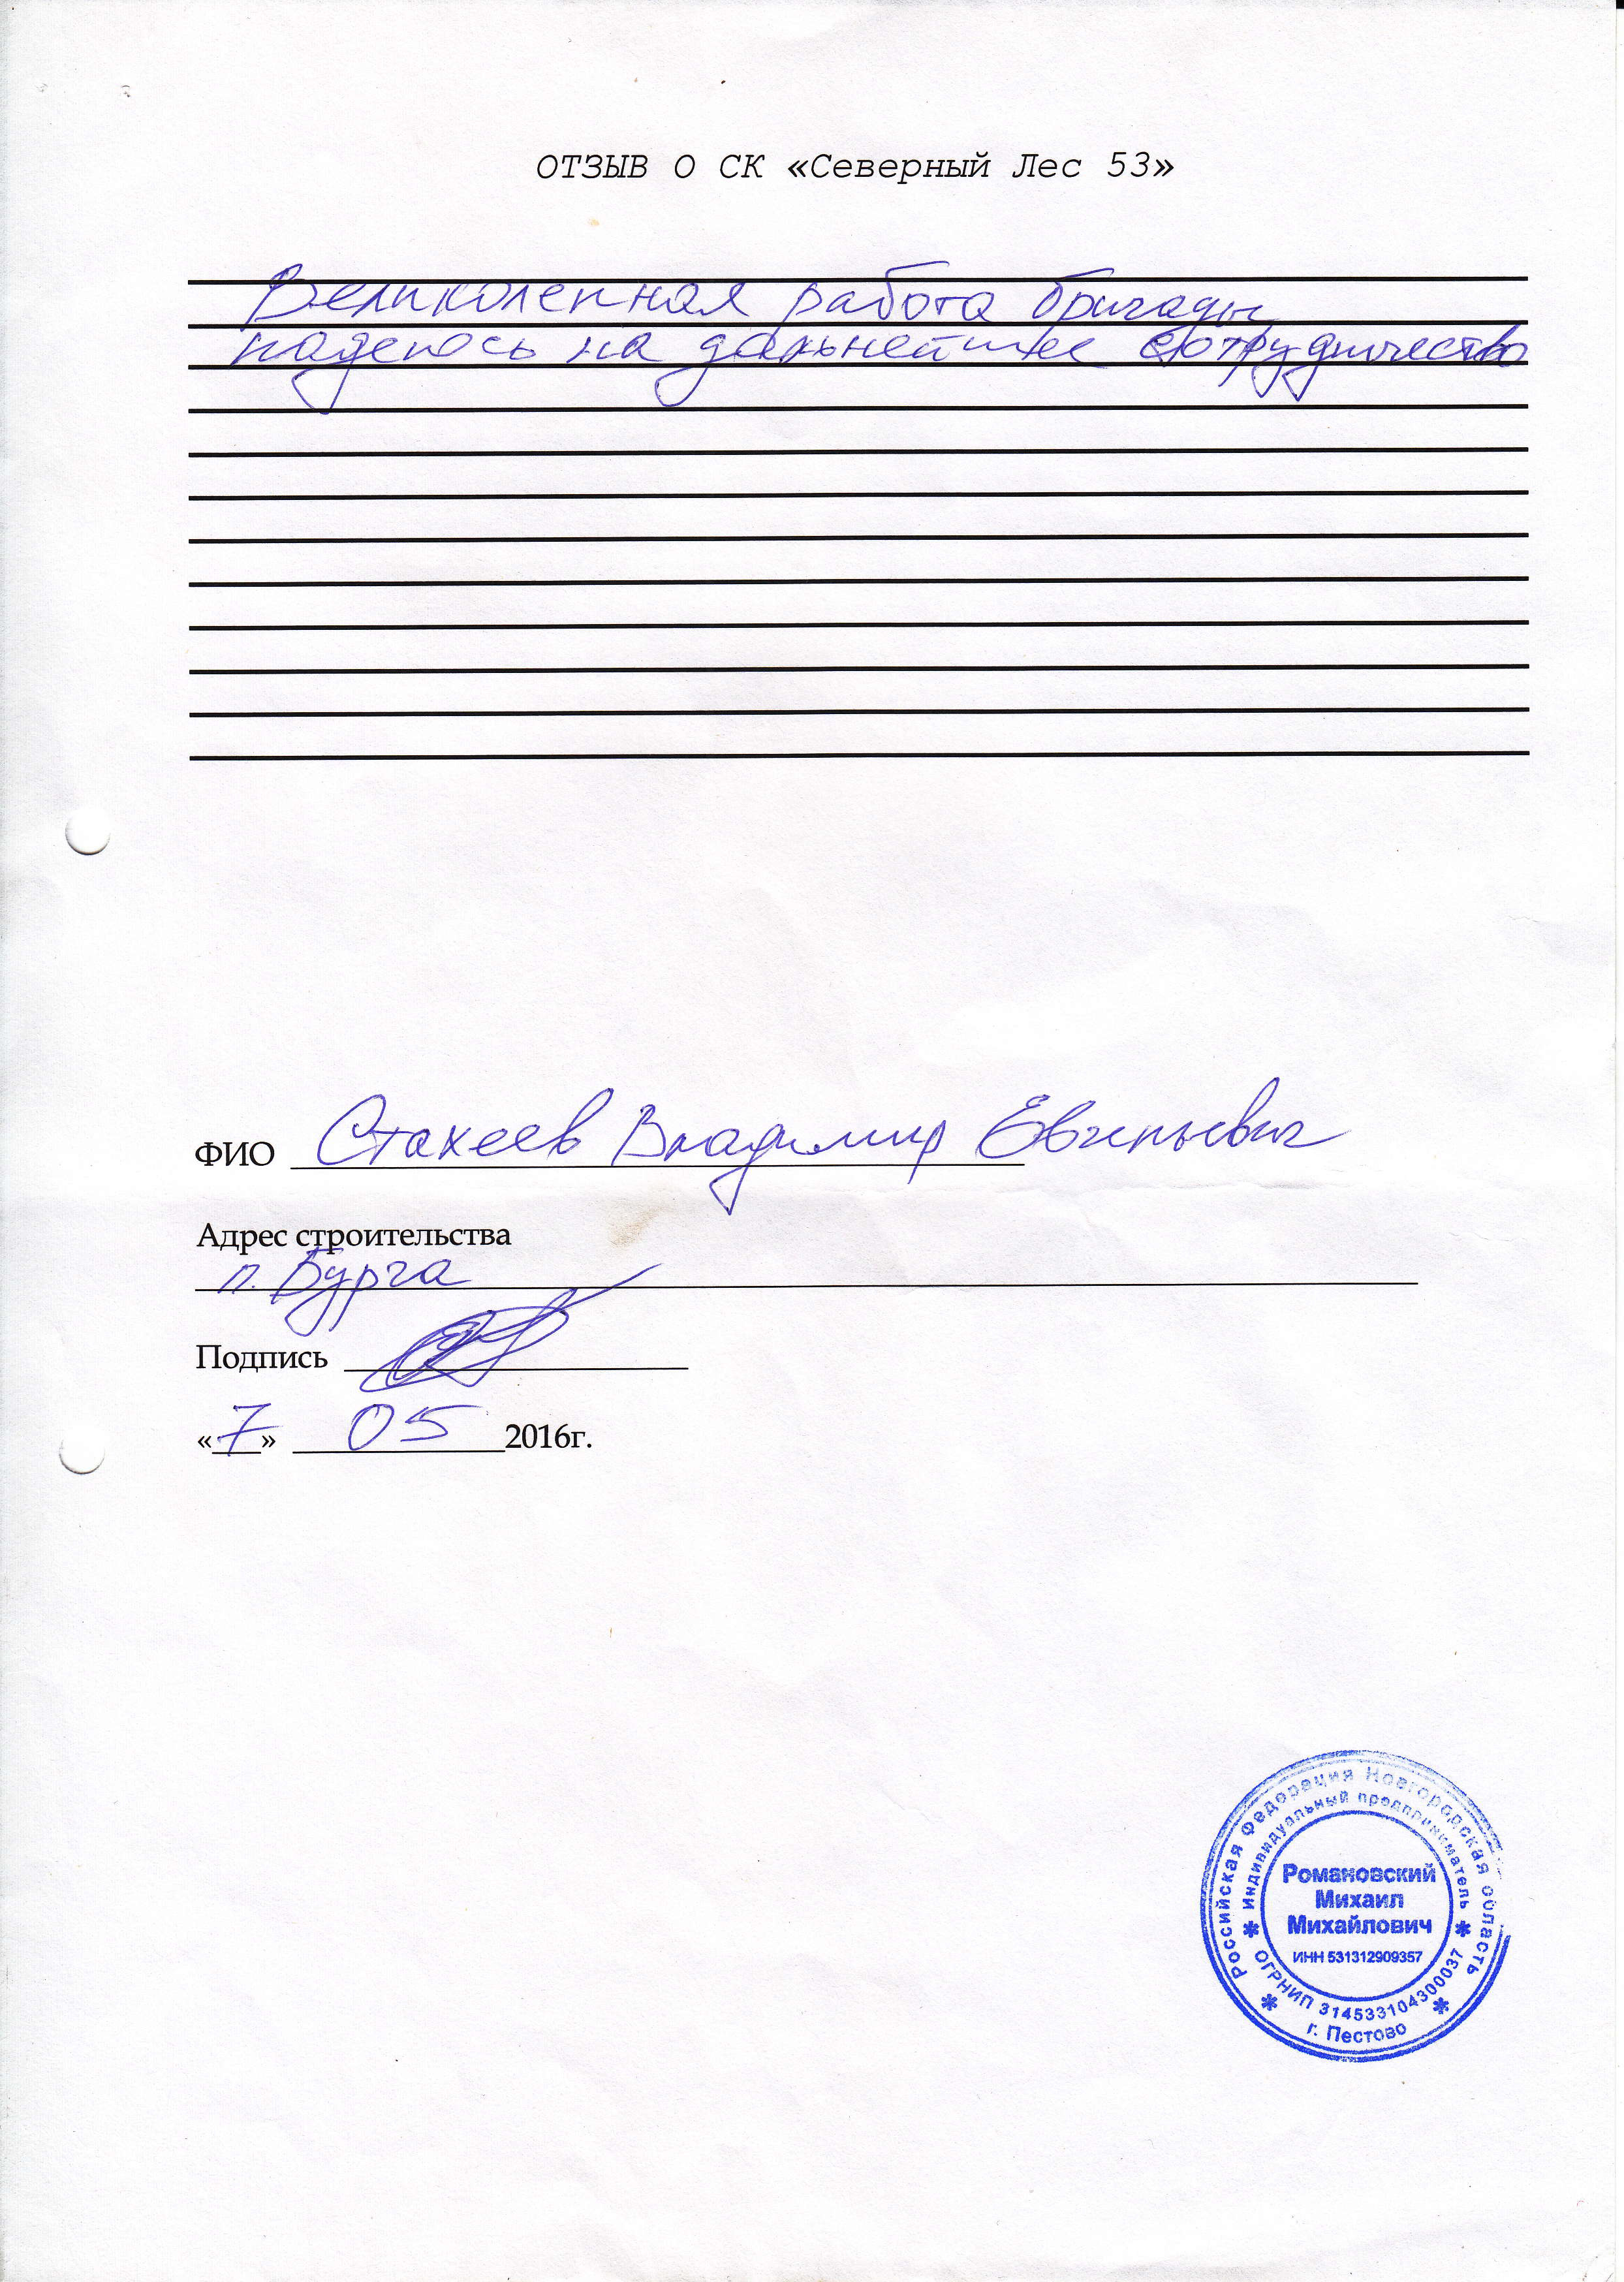 ОТЗЫВ О СК «Северный Лес 53»
Великолепная работа бригады
надеюсь на дальнейшее сотрудничество
ФИО Стахеев Владимир Евгеньевич
Адрес строительства
п. Бурга
Подпись
«7» 05 2016г.
Российская Федерация Новгородская область
Индивидуальный предприниматель
Романовский
Михаил
Михайлович
ИНН 531312909357
ОГРНИП 314533104300037
г. Пестово